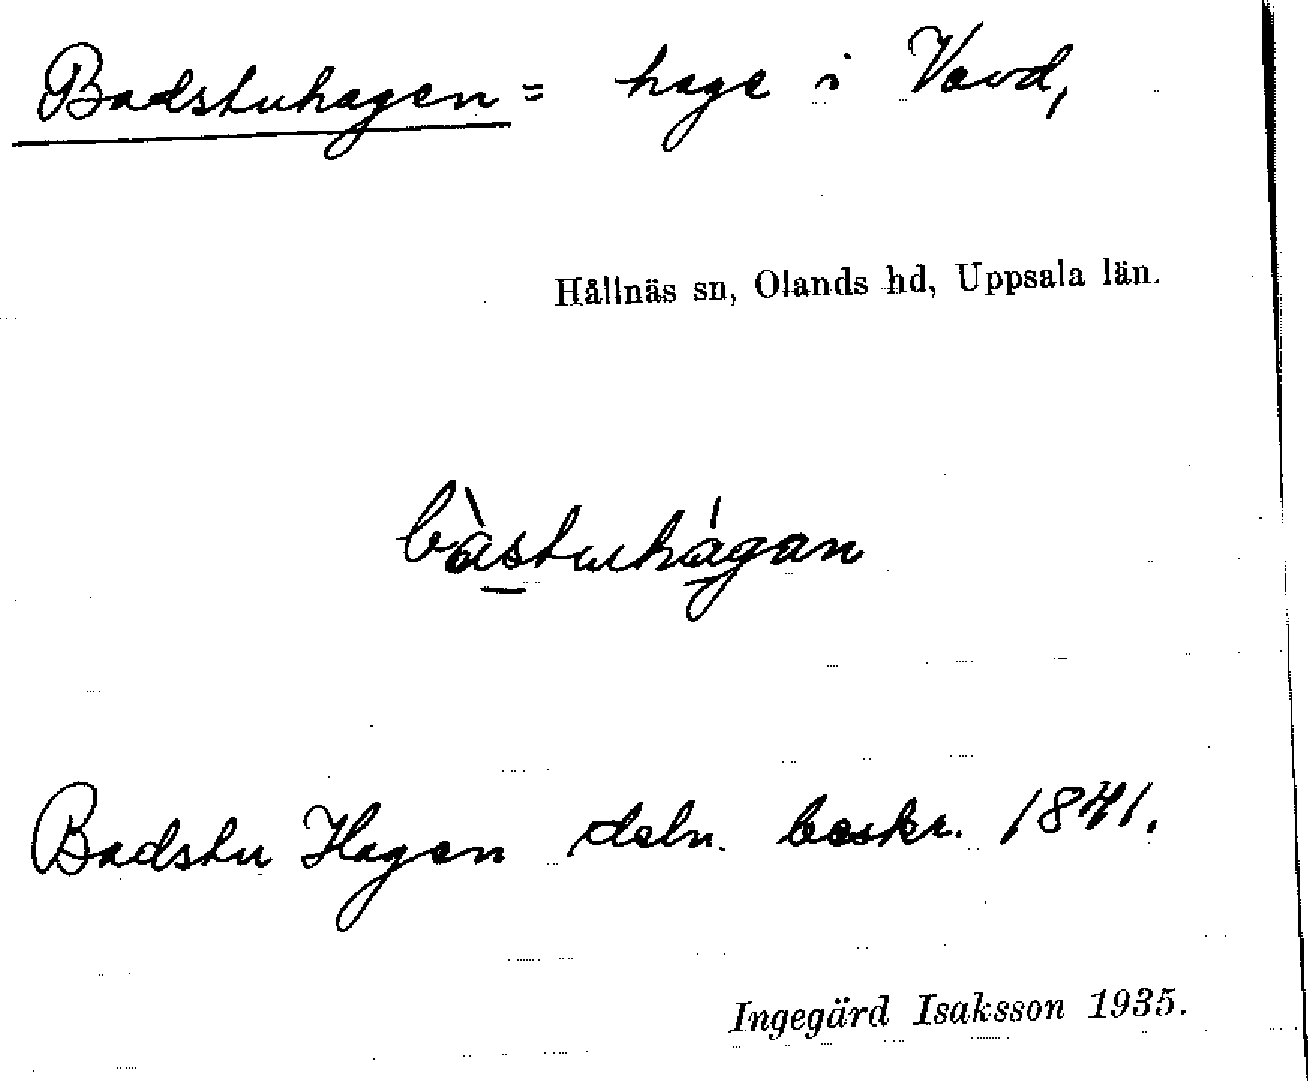 Badstuhagen = hage i Vavd,
Hållnäs sn, Olands hd, Uppsala län.
bàstuhágan
Badstu Hagen deln. beskr. 1841.
Ingegärd Isaksson 1935.